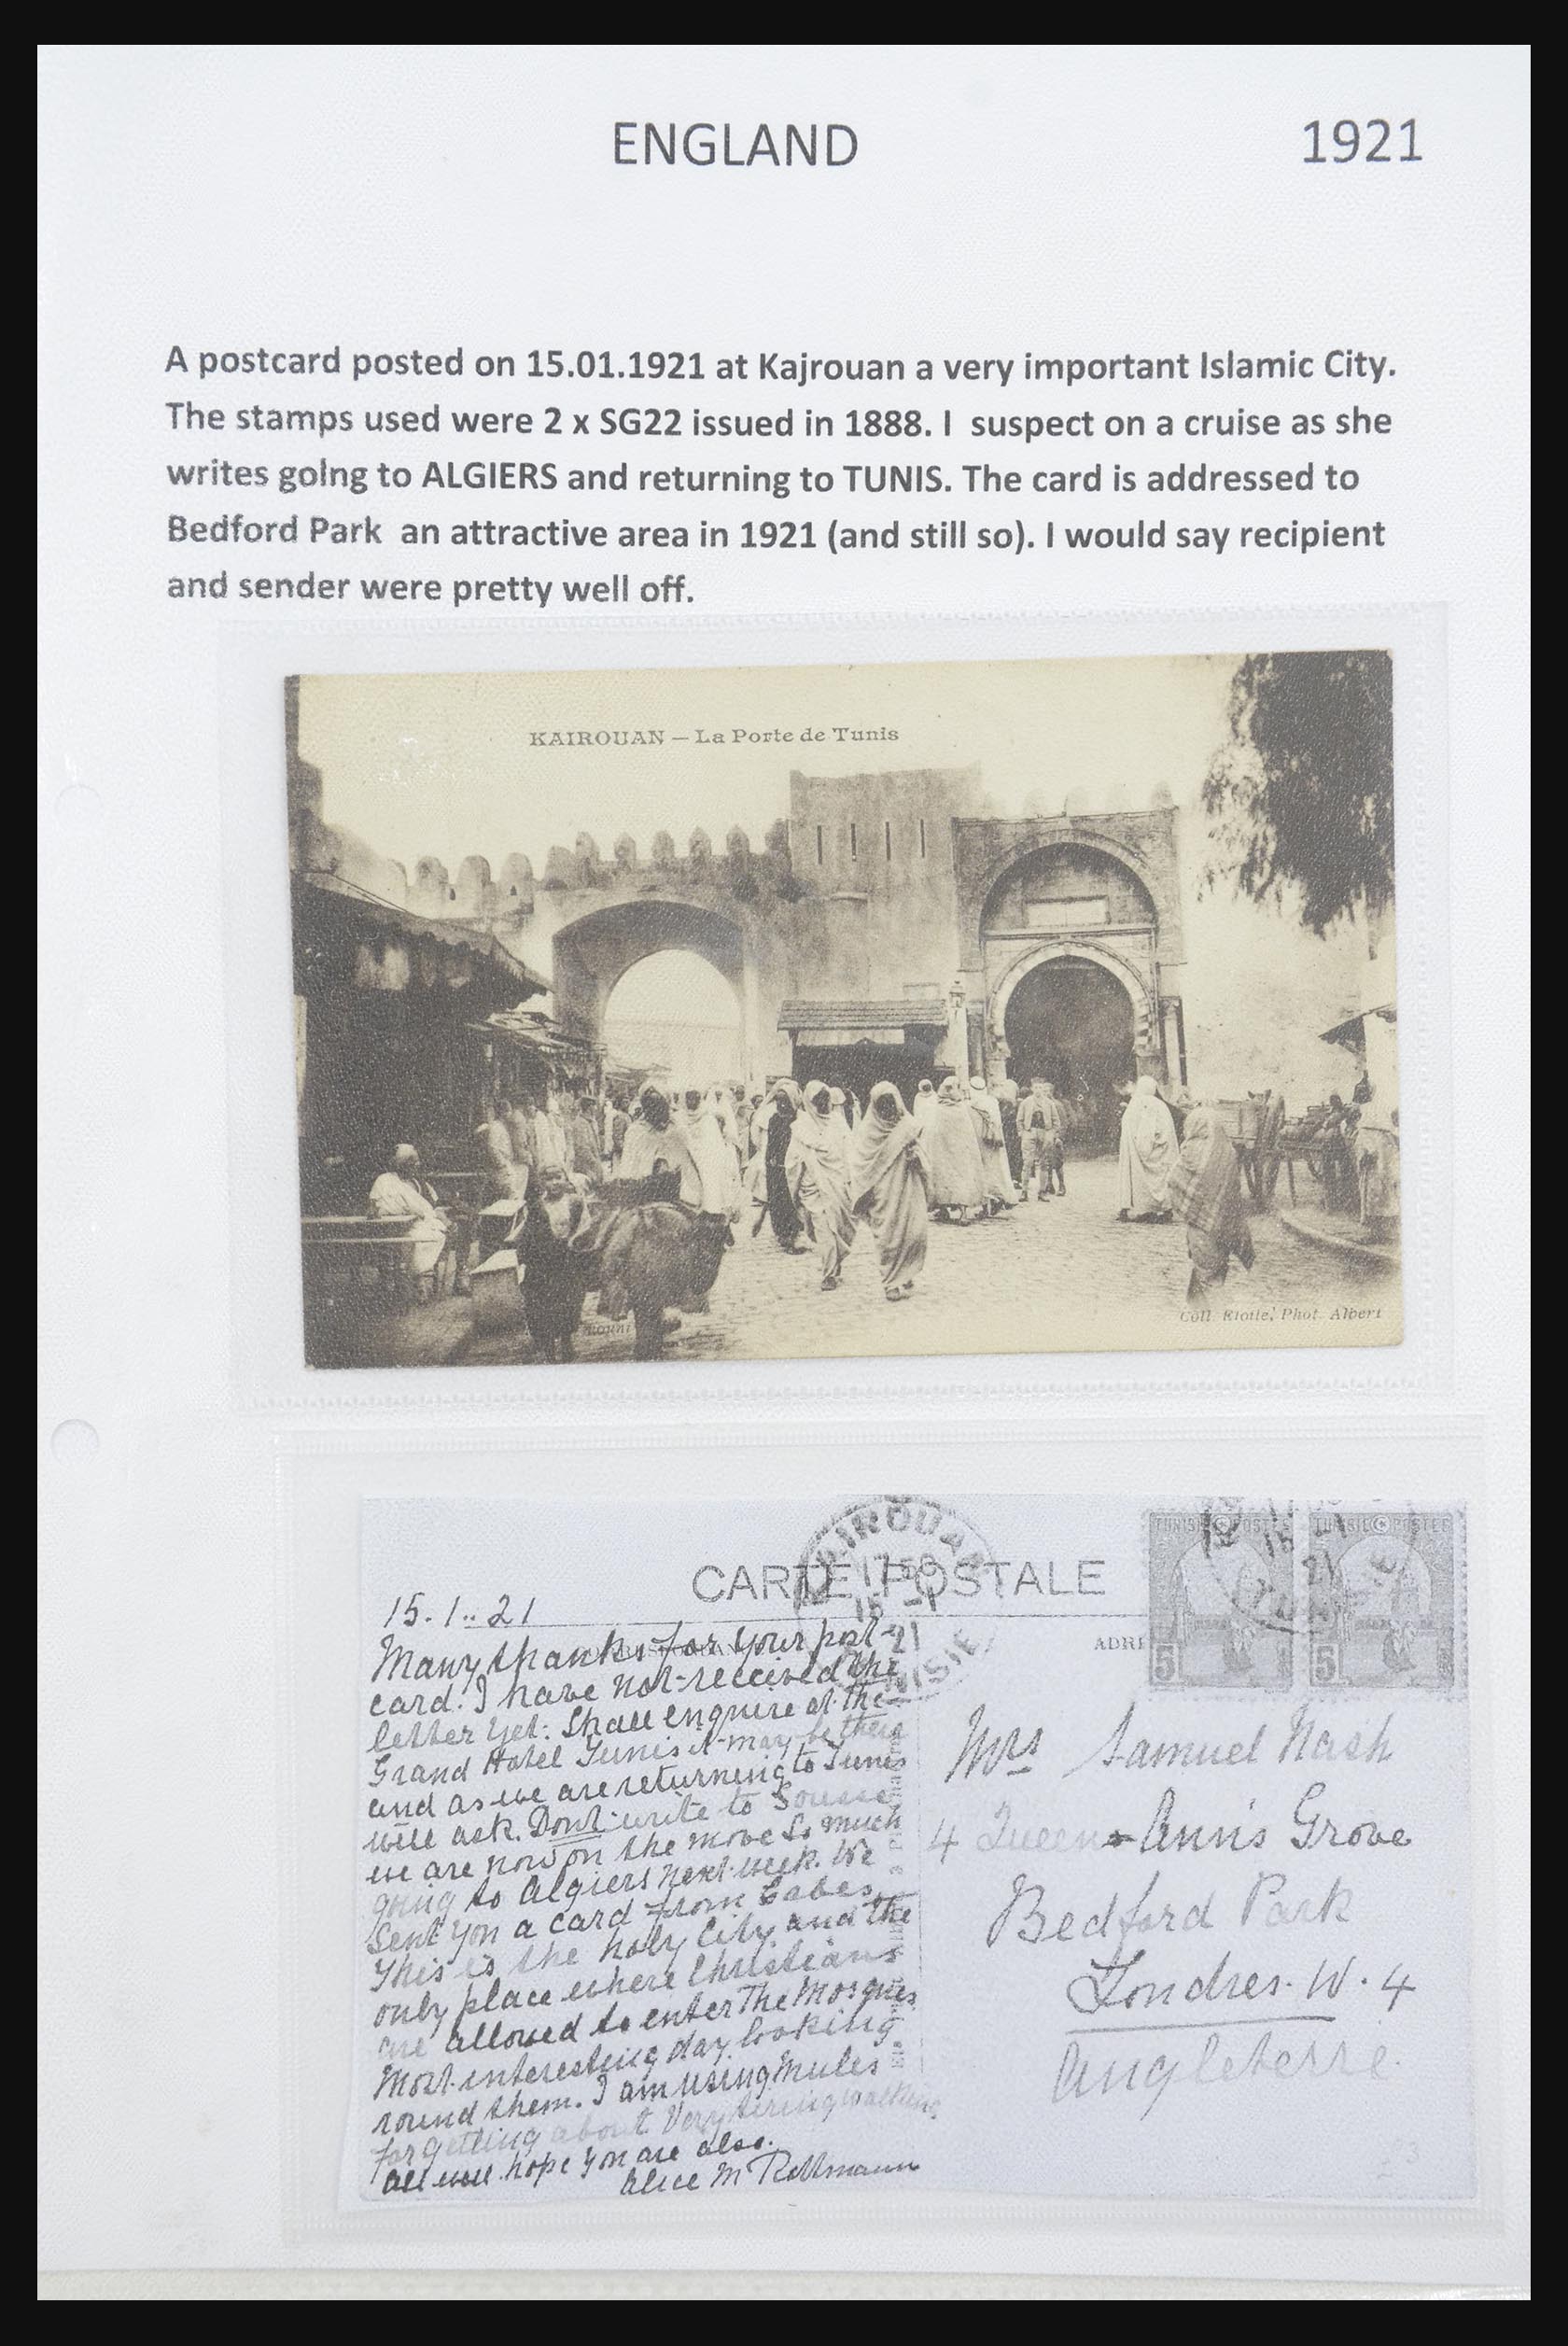 ENGLAND
1921
A postcard posted on 15.01.1921 at Kajrouan a very important Islamic City.
The stamps used were 2 x SG22 issued in 1888. I suspect on a cruise as she
writes going to ALGIERS and returning to TUNIS. The card is addressed to
Bedford Park an attractive area in 1921 (and still so). I would say recipient
and sender were pretty well off.
KAIROUAN — La Porte de Tunis
Coll. Etoile, Phot. Albert
CARTE POSTALE
KAIROUAN
15 -1
21
TUNISIE
TUNISIE POSTES
5
TUNISIE POSTES
5
ADRE
15.1..21
Many thanks for your post-
card. I have not received the
letter yet: Shall enquire at the
Grand Hotel Tunis it may be there
and as we are returning to Tunis
will ask. Dont write to Sousse
we are now on the move so much
going to Algiers next week. We
Sent you a card from Gabes
This is the holy City and the
only place where Christians
are allowed to enter The Mosques
Most interesting day looking
round them. I am using mules
for getting about Very tiring walking
all well hope you are also.
Alice M
Mrs Samuel Nash
4 Queen Anns Grove
Bedford Park
Londres. W. 4
Angleterre.